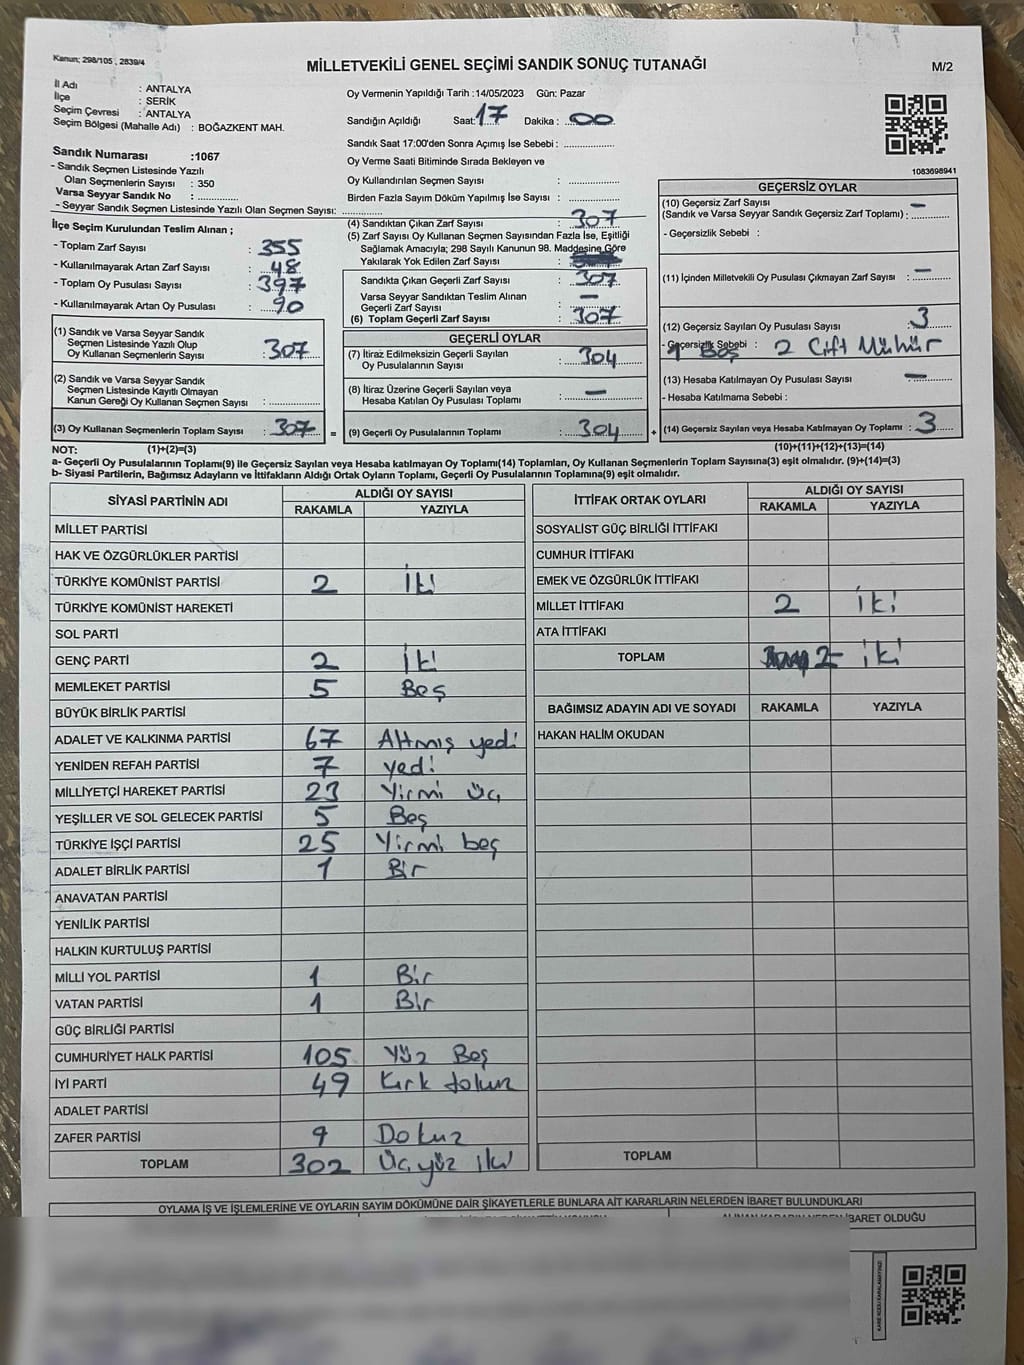 Kanun; 298/105 , 2839/4
MİLLETVEKİLİ GENEL SEÇİMİ SANDIK SONUÇ TUTANAĞI
M/2
İl Adı : ANTALYA
İlçe : SERİK
Seçim Çevresi : ANTALYA
Seçim Bölgesi (Mahalle Adı) : BOĞAZKENT MAH.
Sandık Numarası :1067
- Sandık Seçmen Listesinde Yazılı
Olan Seçmenlerin Sayısı : 350
Varsa Seyyar Sandık No : ..............
- Seyyar Sandık Seçmen Listesinde Yazılı Olan Seçmen Sayısı: ..............
Oy Vermenin Yapıldığı Tarih :14/05/2023 Gün: Pazar
Sandığın Açıldığı Saat: 17 Dakika : 00
Sandık Saat 17:00'den Sonra Açımış İse Sebebi : ..............
Oy Verme Saati Bitiminde Sırada Bekleyen ve
Oy Kullandırılan Seçmen Sayısı : ..............
Birden Fazla Sayım Döküm Yapılmış İse Sayısı : ..............
1083698941
İlçe Seçim Kurulundan Teslim Alınan ;
- Toplam Zarf Sayısı : 355
- Kullanılmayarak Artan Zarf Sayısı : 48
- Toplam Oy Pusulası Sayısı : 397
- Kullanılmayarak Artan Oy Pusulası : 90
(1) Sandık ve Varsa Seyyar Sandık
Seçmen Listesinde Yazılı Olup
Oy Kullanan Seçmenlerin Sayısı : 307
(2) Sandık ve Varsa Seyyar Sandık
Seçmen Listesinde Kayıtlı Olmayan
Kanun Gereği Oy Kullanan Seçmen Sayısı : ..............
(3) Oy Kullanan Seçmenlerin Toplam Sayısı : 307 =
(4) Sandıktan Çıkan Zarf Sayısı : 307
(5) Zarf Sayısı Oy Kullanan Seçmen Sayısından Fazla İse, Eşitliği
Sağlamak Amacıyla; 298 Sayılı Kanunun 98. Maddesine Göre
Yakılarak Yok Edilen Zarf Sayısı :
Sandıkta Çıkan Geçerli Zarf Sayısı : 307
Varsa Seyyar Sandıktan Teslim Alınan
Geçerli Zarf Sayısı : —
(6) Toplam Geçerli Zarf Sayısı : 307
GEÇERLİ OYLAR
(7) İtiraz Edilmeksizin Geçerli Sayılan
Oy Pusulalarının Sayısı : 304
(8) İtiraz Üzerine Geçerli Sayılan veya
Hesaba Katılan Oy Pusulası Toplamı : —
(9) Geçerli Oy Pusulalarının Toplamı : 304 +
GEÇERSİZ OYLAR
(10) Geçersiz Zarf Sayısı
(Sandık ve Varsa Seyyar Sandık Geçersiz Zarf Toplamı) : —
- Geçersizlik Sebebi :
(11) İçinden Milletvekili Oy Pusulası Çıkmayan Zarf Sayısı : —
(12) Geçersiz Sayılan Oy Pusulası Sayısı : 3
- Geçersizlik Sebebi : 1 Boş 2 Çift Mühür
(13) Hesaba Katılmayan Oy Pusulası Sayısı : —
- Hesaba Katılmama Sebebi :
(14) Geçersiz Sayılan veya Hesaba Katılmayan Oy Toplamı : 3
NOT: (1)+(2)=(3)
(10)+(11)+(12)+(13)=(14)
a- Geçerli Oy Pusulalarının Toplamı(9) ile Geçersiz Sayılan veya Hesaba katılmayan Oy Toplamı(14) Toplamları, Oy Kullanan Seçmenlerin Toplam Sayısına(3) eşit olmalıdır. (9)+(14)=(3)
b- Siyasi Partilerin, Bağımsız Adayların ve İttifakların Aldığı Ortak Oyların Toplamı, Geçerli Oy Pusulalarının Toplamına(9) eşit olmalıdır.
SİYASİ PARTİNİN ADI ALDIĞI OY SAYISI
RAKAMLA YAZIYLA
MİLLET PARTİSİ
HAK VE ÖZGÜRLÜKLER PARTİSİ
TÜRKİYE KOMÜNİST PARTİSİ 2 İki
TÜRKİYE KOMÜNİST HAREKETİ
SOL PARTİ
GENÇ PARTİ 2 İki
MEMLEKET PARTİSİ 5 Beş
BÜYÜK BİRLİK PARTİSİ
ADALET VE KALKINMA PARTİSİ 67 Altmış yedi
YENİDEN REFAH PARTİSİ 7 yedi
MİLLİYETÇİ HAREKET PARTİSİ 23 Yirmi üç
YEŞİLLER VE SOL GELECEK PARTİSİ 5 Beş
TÜRKİYE İŞÇİ PARTİSİ 25 Yirmi beş
ADALET BİRLİK PARTİSİ 1 Bir
ANAVATAN PARTİSİ
YENİLİK PARTİSİ
HALKIN KURTULUŞ PARTİSİ
MİLLİ YOL PARTİSİ 1 Bir
VATAN PARTİSİ 1 Bir
GÜÇ BİRLİĞİ PARTİSİ
CUMHURİYET HALK PARTİSİ 105 Yüz Beş
İYİ PARTİ 49 Kırk dokuz
ADALET PARTİSİ
ZAFER PARTİSİ 9 Dokuz
TOPLAM 302 Üçyüz iki
İTTİFAK ORTAK OYLARI ALDIĞI OY SAYISI
RAKAMLA YAZIYLA
SOSYALİST GÜÇ BİRLİĞİ İTTİFAKI
CUMHUR İTTİFAKI
EMEK VE ÖZGÜRLÜK İTTİFAKI
MİLLET İTTİFAKI 2 İki
ATA İTTİFAKI
TOPLAM 2 İki
BAĞIMSIZ ADAYIN ADI VE SOYADI RAKAMLA YAZIYLA
HAKAN HALİM OKUDAN
TOPLAM
OYLAMA İŞ VE İŞLEMLERİNE VE OYLARIN SAYIM DÖKÜMÜNE DAİR ŞİKAYETLERLE BUNLARA AİT KARARLARIN NELERDEN İBARET BULUNDUKLARI
İBARET OLDUĞU